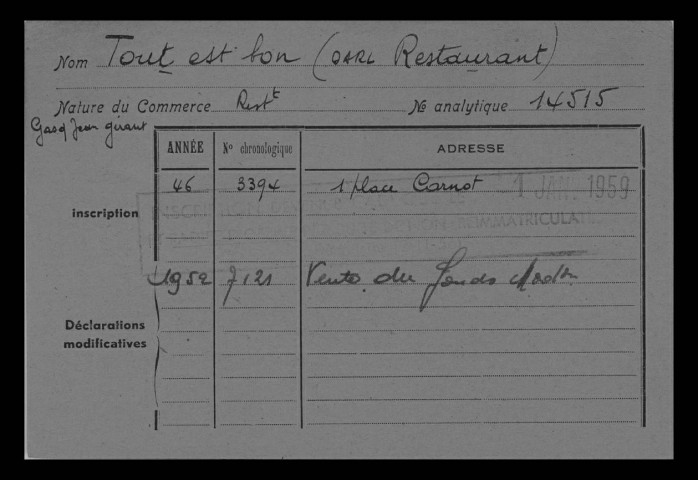 Nom Tout est bon (SARL Restaurant)
Nature du Commerce Rest^t № analytique 14515
Gasq Jean gérant
ANNÉE N° chronologique ADRESSE
inscription 46 3394 1 place Carnot 1 JAN. 1959
IMMATRICULATION
1952 7121 Vente du fonds
Déclarations
modificatives